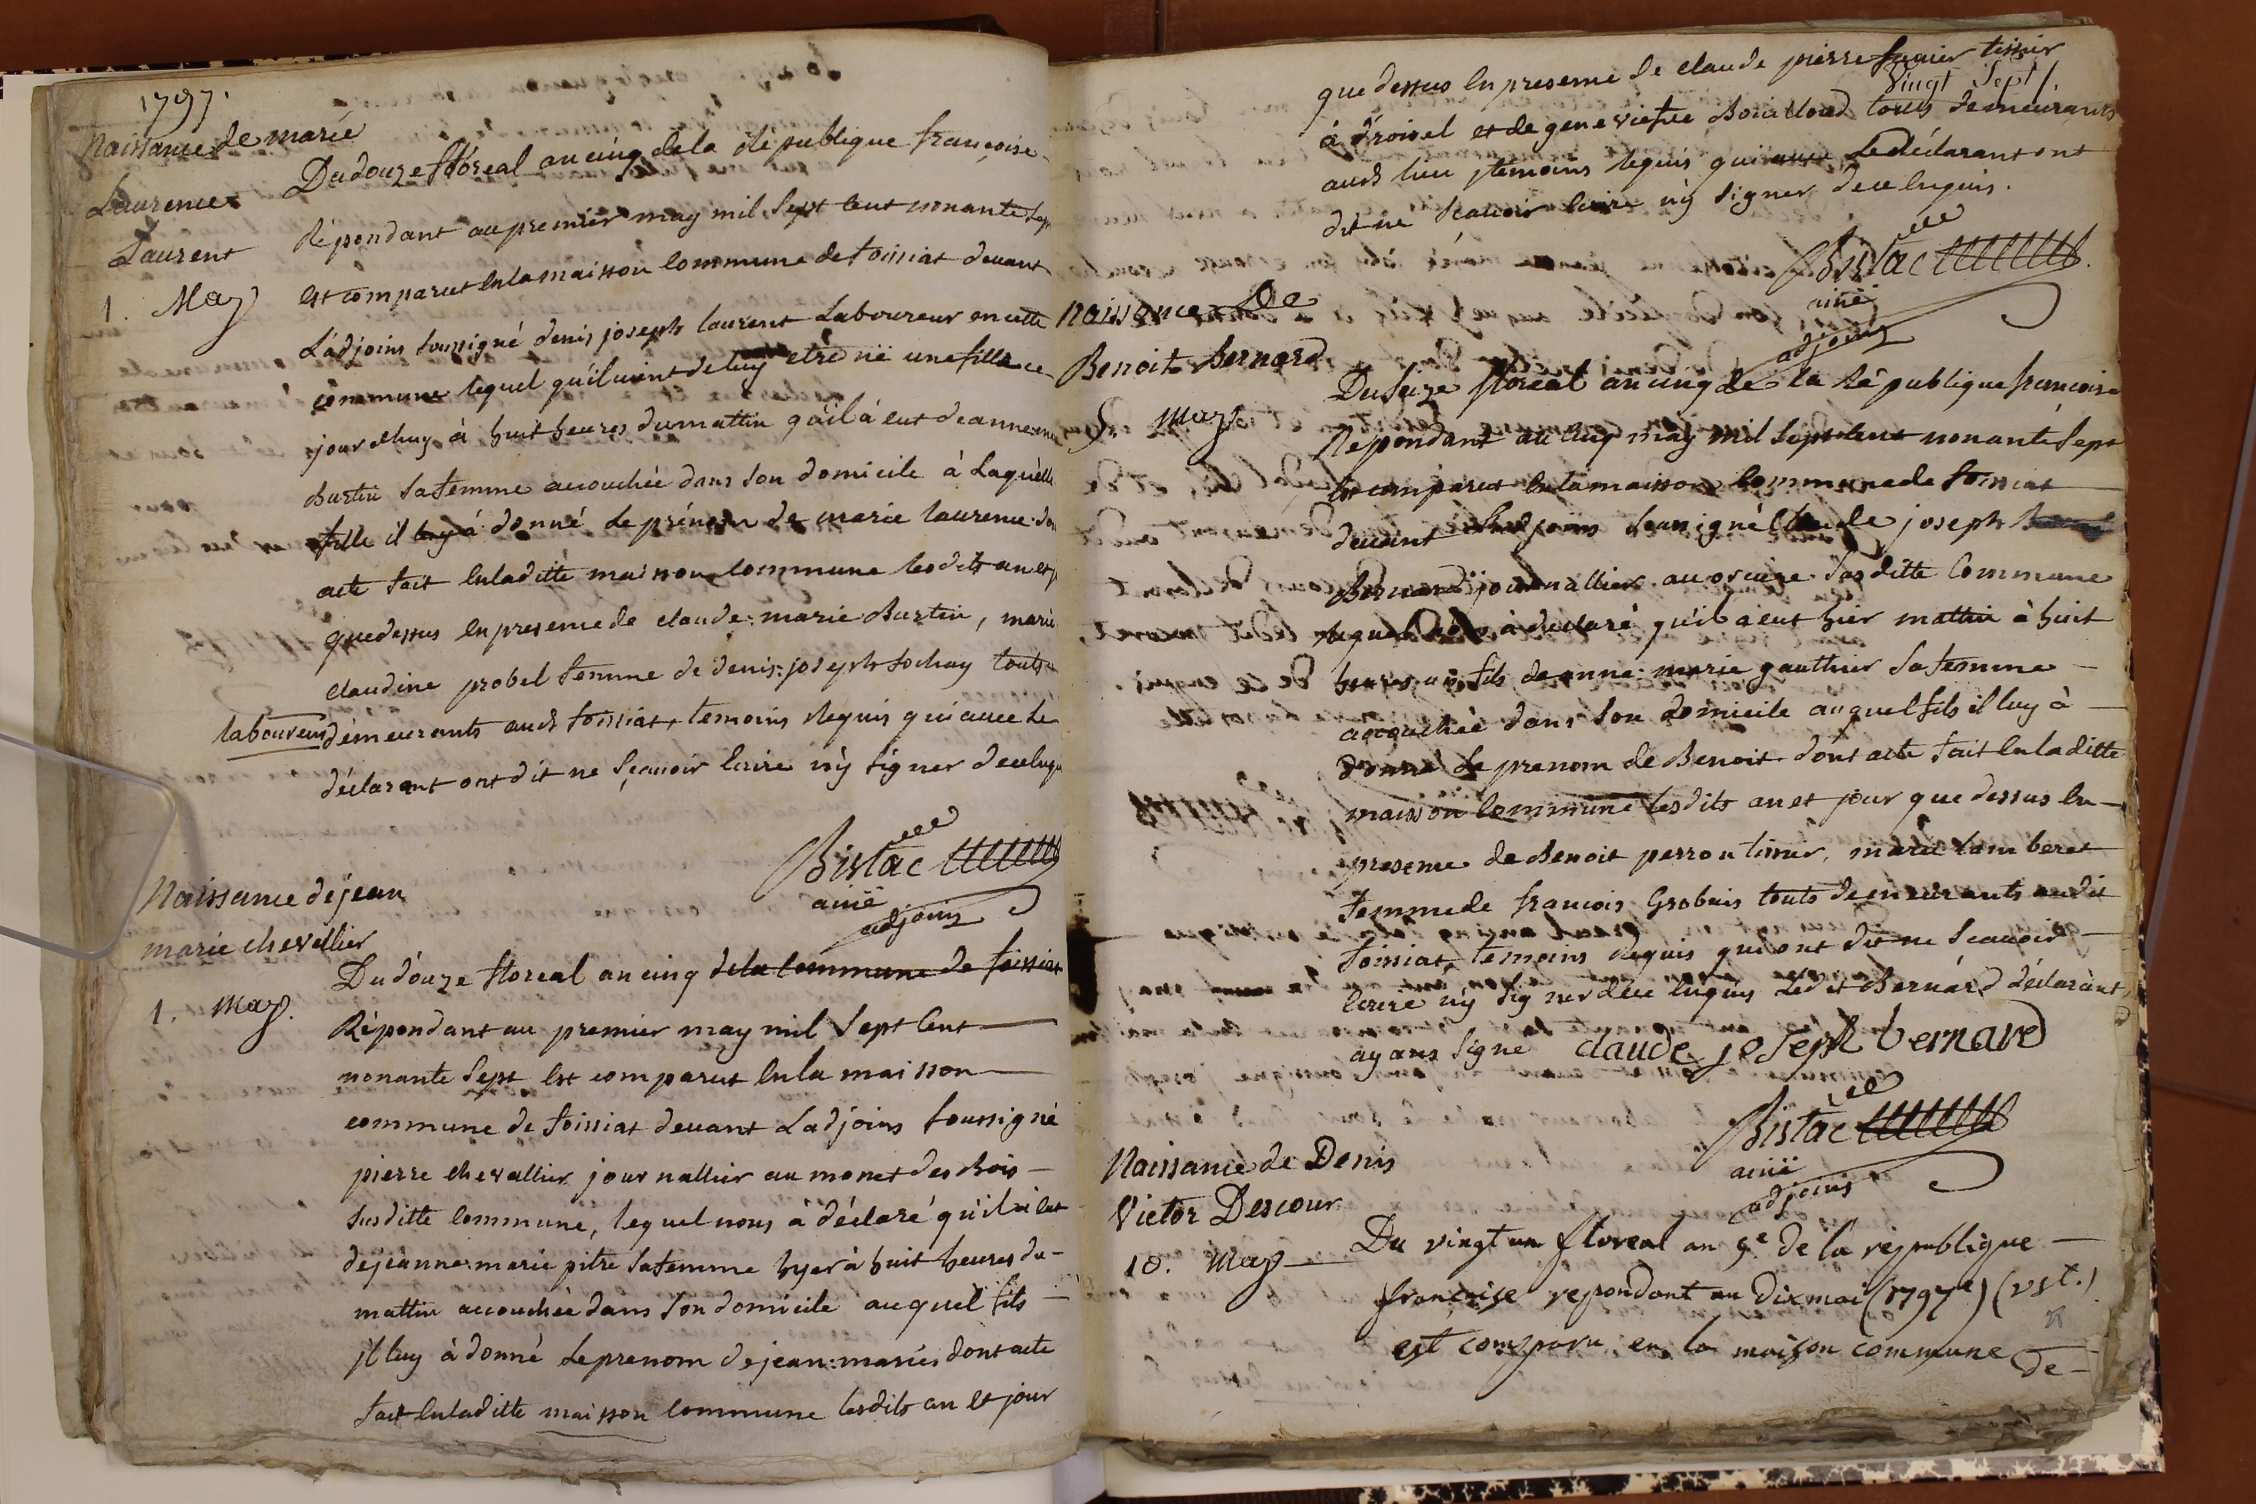 1797.
Naissance de marie
Laurence
Laurent
1. May
Du douze floreal an cinq de la Republique françoise
Répondant au premier may mil sept cent nonante sept
est comparut en la maison commune de foissiat devant
L'adjoins soussigné denis joseph laurent Laboureur en cette
commune lequel qu'il vient de luy etre né une fille ce
jour dhuy à huit heures du mattin qu'il à eut de anne
Burtin sa femme accouchée dans son domicile à Laquelle
fille il luy à donné le prénom de marie laurence dont
acte fait en laditte maison commune lesdits an et jour
que dessus en presence de claude: marie Burtin, marie
claudine probel femme de denis: joseph sochay touts
laboureurs demeurants audt foissiat, temoins requis qui avec le
déclarant ont dit ne sçavoir ecrire ny signer de ce enquis
Bistac
ainé
adjoins
Naissance de jean
marie chevallier
1. May.
Du douze floreal an cinq de la commune de foissiat
Répondant au premier may mil sept cent
nonante sept est comparut en la maison
commune de foissiat devant Ladjoins soussigné
pierre chevallier journallier au monet des bois
susditte commune, lequel nous à déclaré qu'il à eut
de jeanne: marie pitre sa femme hyer à huit heures du
mattin accouchée dans son domicile auquel fils
il luy à donné le prenom de jean: marie dont acte
fait en laditte maison commune lesdits an et jour
que dessus en presence de claude pierre tissier
Vingt Sept
à et de genevieve touts demeurants
audt lieu temoins requis qui le déclarant ont
dit ne scavoir ecrire ny signer de ce enquis.
Bistac
ainé
adjoins
Naissance De
Benoit Bernard
May
Du seize floreal an cinq de la République francoise
Répondant au cinq may mil sept cent nonante sept
est comparut en la maison commune de foissiat
devant Ladjoins soussigné claude joseph
Bernard journallier susditte Commune
lequel nous à déclaré qu'il à eut hier mattin à huit
heures un fils de anne: marie gauthier sa femme
accouchée dans son domicile auquel fils il luy à
donné le prenom de Benoit dont acte fait en laditte
maison commune lesdits an et jour que dessus en
presence de Benoit perron , marie lamberet
femme de francois Grobuis touts demeurants audit
foissiat, temoins requis qui ont dit ne scavoir
ecrire ny signer de ce enquis Ledit Bernard déclarant
ayans signé claude joseph bernard
Bistac
ainé
adjoins
Naissance de Denis
Victor Descour
10. May
Du vingt un floreal an 5e de la république
française repondant au Dix mai (1797) (v st.)
est comparu en la maison commune
de